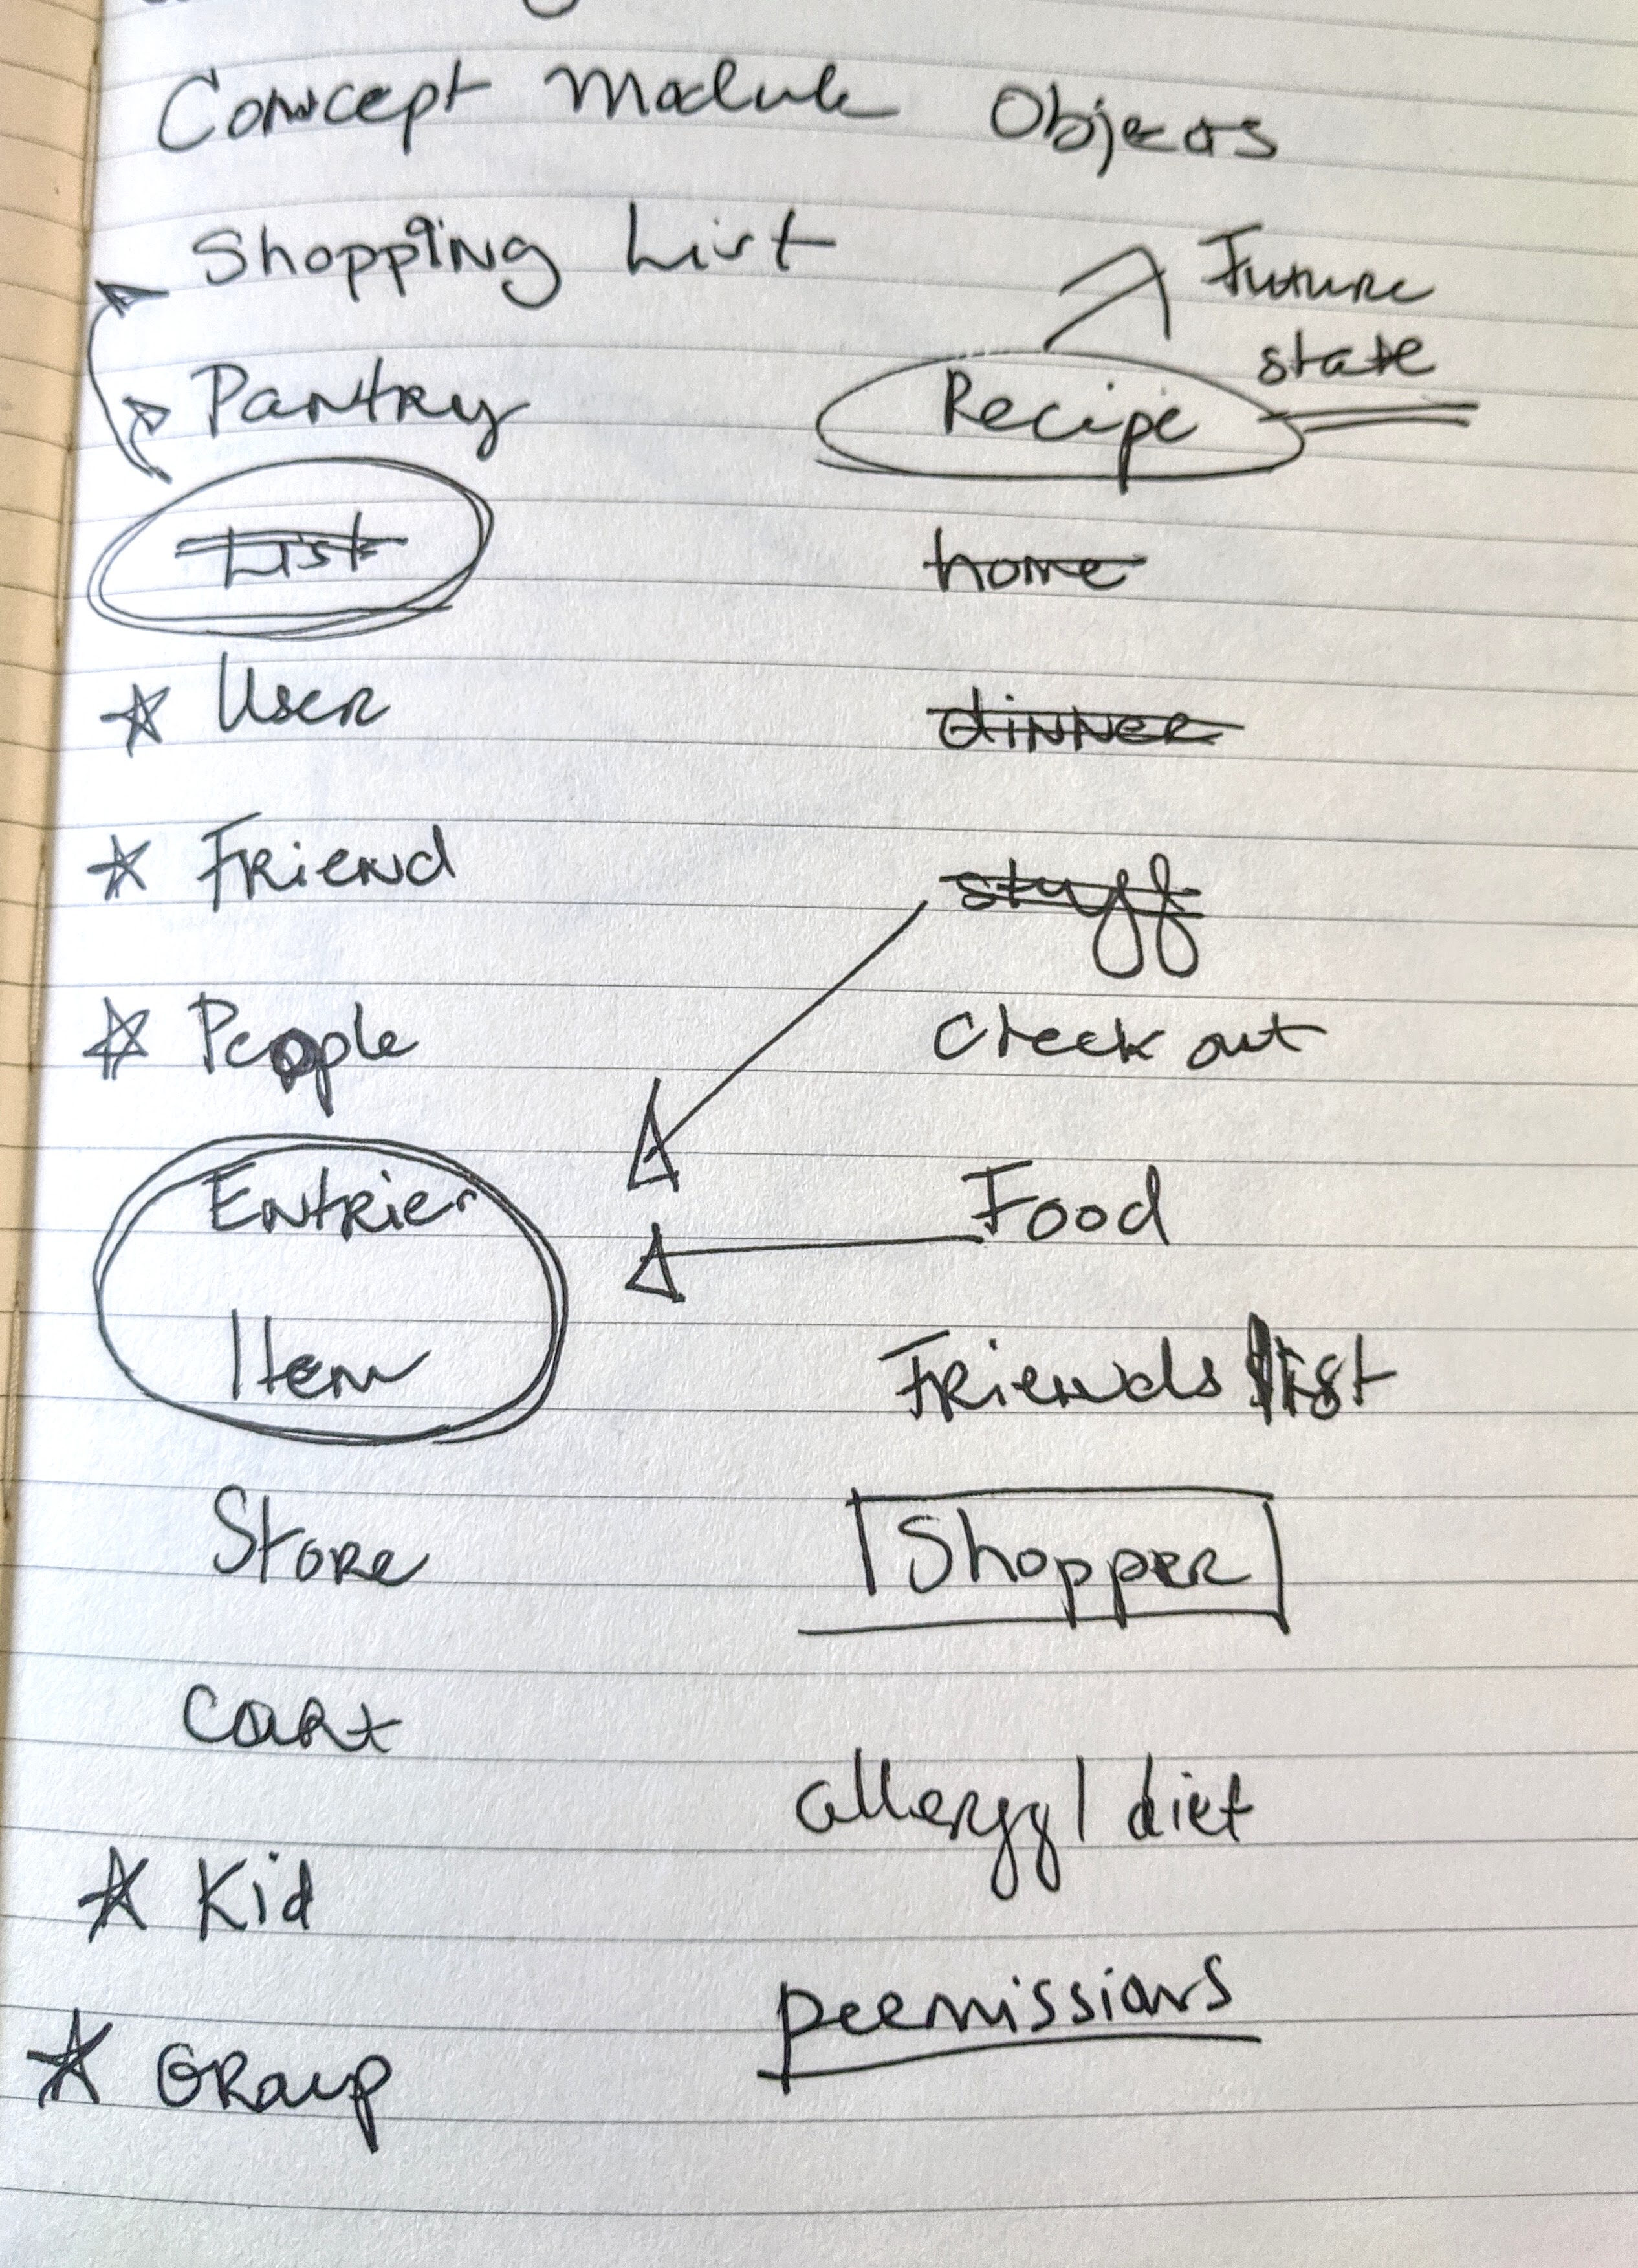 Concept Module Objects
Shopping List
Pantry
List
User
Friend
People
Entries
Item
Store
Cart
Kid
Group
Future
state
Recipe
home
dinner
stuff
Check out
Food
Friends list
Shopper
allergy / diet
permissions